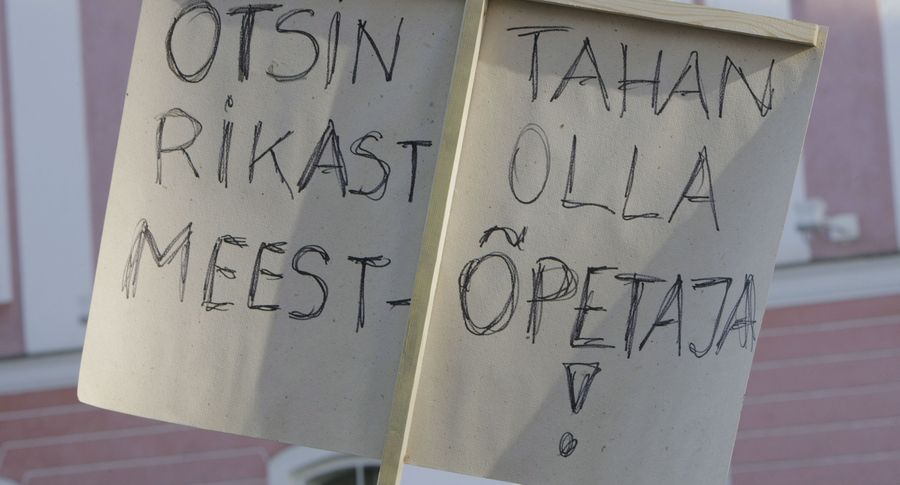 OTSIN
RIKAST
MEEST-
TAHAN
OLLA
ÕPETAJA
!